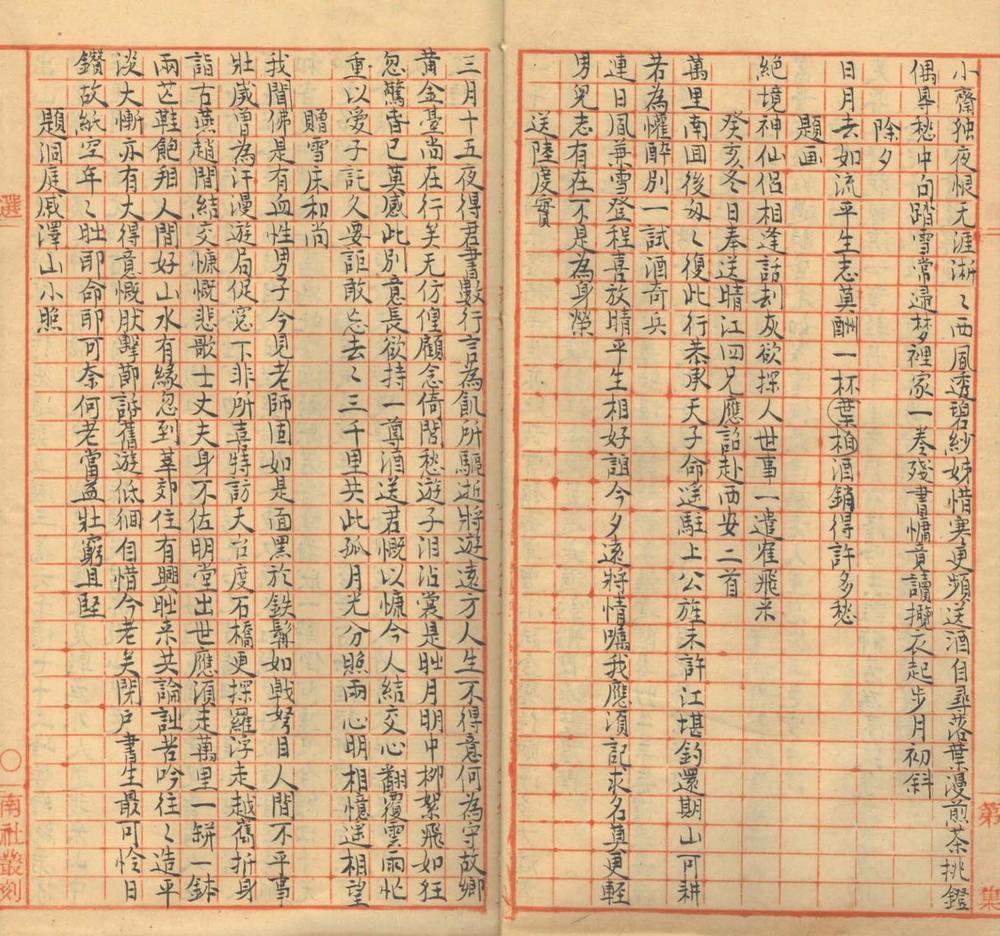 小齋独夜悵无涯淅〻西風透碧紗姊惜寒更頻送酒自尋落葉漫煎茶挑鐙
偶尋愁中句踏雪常歸梦裡家一卷殘書慵竟讀攬衣起步月初斜
除夕
日月去如流平生志莫酬一杯葉柏酒銷得許多愁
題画
絕境神仙侶相逢話刦灰欲探人世事一遣寉飛来
癸亥冬日奉送晴江四兄應詔赴西安二首
萬里南回後匆〻復此行恭承天子命遙駐上公旌未許江堪釣還期山可耕
若為懽醉別一試酒奇兵
連日風兼雪登程喜放晴平生相好誼今夕遠將情囑我應須記求名莫更輕
男兒志有在不是為身榮
送陸度實
第
集
三月十五夜得君書數行言為飢所驅逝將遊遠方人生不得意何為守故鄉
黄金臺尚在行矣无仿偟顧念倚閭愁遊子泪沾裳是時月明中柳絮飛如狂
忽驚春已莫感此別意長欲持一尊酒送君慨以慷今人結交心翻覆雲雨忙
重以愛子託久要詎敢忘去〻三千里共此孤月光分照兩心明相憶遙相望
贈雪床和尚
我聞佛是有血性男子今見老師洵如是面黑於鉄鬅如戟努目人間不平事
壯歲曽為汗漫遊局促窓下非所喜特訪天台度石橋更探羅浮走越嶲折身
詣古燕趙間結交慷慨悲歌士丈夫身不佐明堂出世應須走萬里一缾一鉢
兩芒鞋飽翔人間好山水有緣忽到莘郊住有興時来共論詩苦吟往〻造平
淡大慚亦有大得意慨肰擊節訴舊遊低徊自惜今老矣閉戶書生最可怜日
鑽故紙空年〻時耶命耶可奈何老當益壯窮且堅
題洞庭戚澤山小照
選
〇
南社叢刻